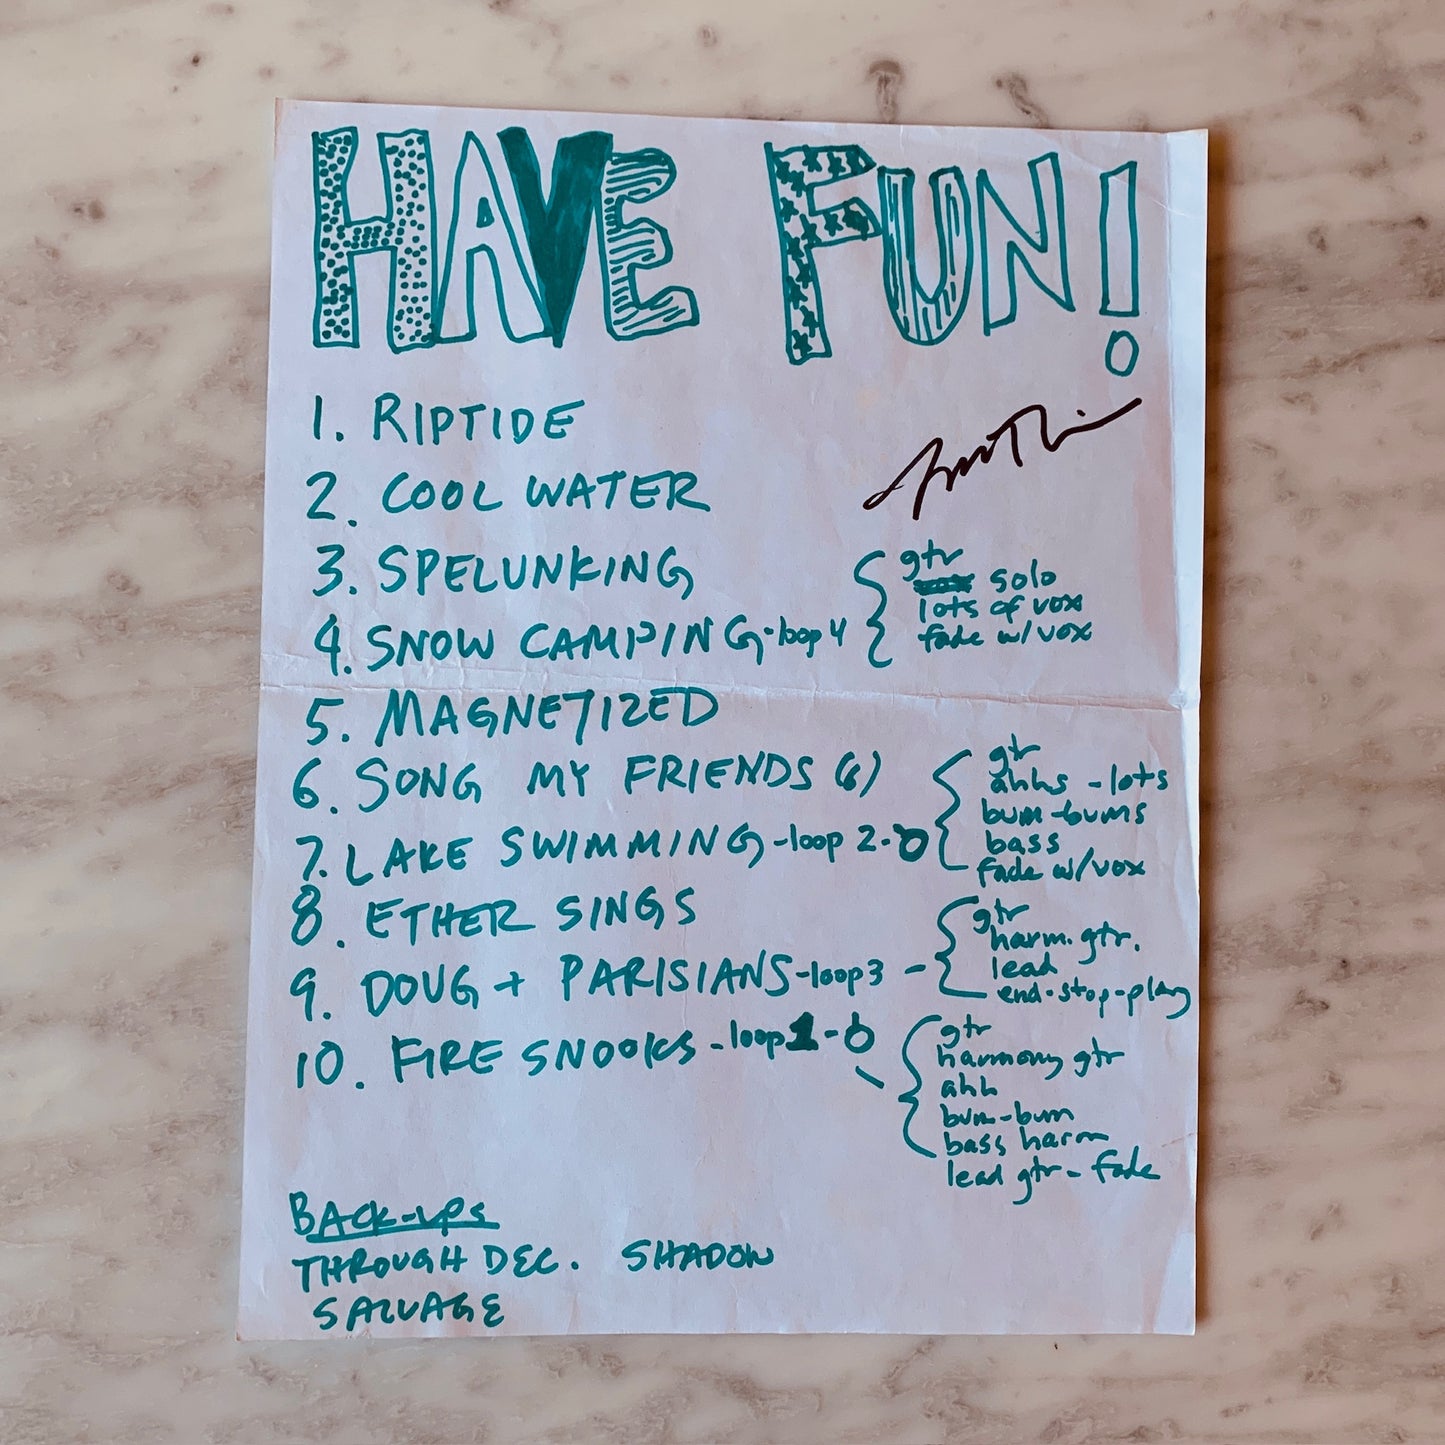 HAVE FUN!
1. RIPTIDE
2. COOL WATER
3. SPELUNKING
4. SNOW CAMPING - loop 4
gtr
solo
lots of vox
fade w/vox
5. MAGNETIZED
6. SONG MY FRIENDS (6)
7. LAKE SWIMMING - loop 2 -
gtr
ahhs - lots
bum-bums
bass
fade w/vox
8. ETHER SINGS
9. DOUG + PARISIANS - loop 3 -
gtr
harm. gtr.
lead
end-stop-play
10. FIRE SNOOKS - loop 1 -
gtr
harmony gtr
ahh
bum-bum
bass harm
lead gtr - fade
BACK-UPS
THROUGH DEC. SHADOW
SALVAGE